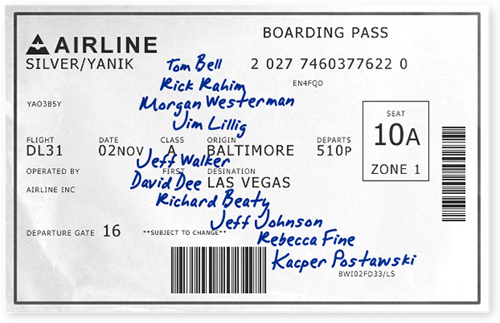 AIRLINE
BOARDING PASS
SILVER/YANIK
Tom Bell
2 027 7460377622 0
Rick Rahim
EN4FQD
YAO3B5Y
Morgan Westerman
Jim Lillig
SEAT
10A
ZONE 1
FLIGHT DATE CLASS ORIGIN DEPARTS
DL31 02NOV A BALTIMORE 510P
Jeff Walker
OPERATED BY FIRST DESINATION
AIRLINE INC
David Dee
LAS VEGAS
Richard Beaty
Jeff Johnson
DEPARTURE GATE 16 **SUBJECT TO CHANGE**
Rebecca Fine
Kacper Postawski
BWI02FD33/LS